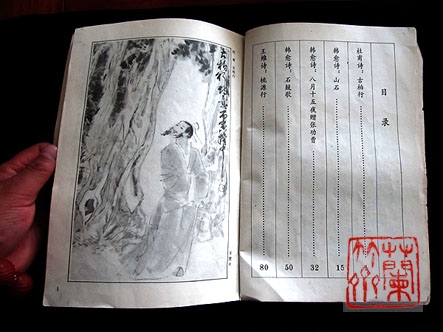 目录
杜甫诗：古柏行
韩愈诗：山石 15
韩愈诗：八月十五夜赠张功曹 32
韩愈诗：石鼓歌 50
王维诗：桃源行 80
古柏行
蘭